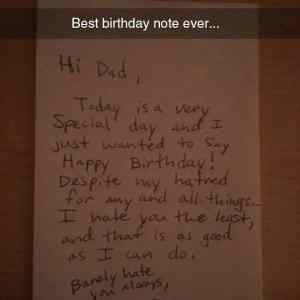 Best birthday note ever...
Hi Dad,
Today is a very
Special day and I
just wanted to say
Happy Birthday!
Despite my hatred
for any and all things...
I hate you the least,
and that is as good
as I can do.
Barely hate
you always,